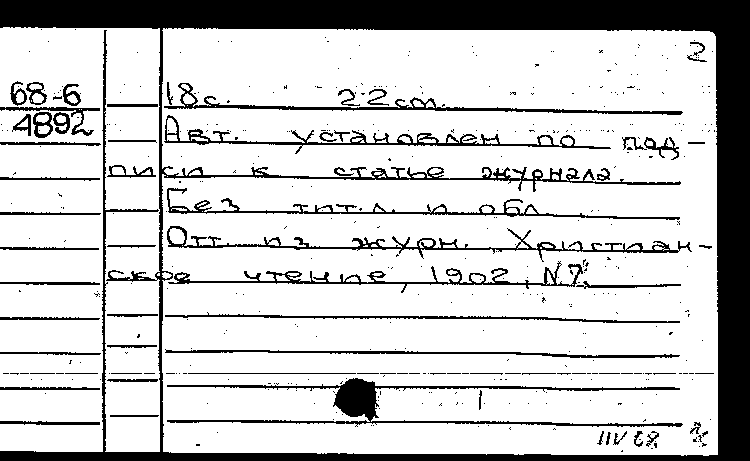 2
68-6 18с. 22см.
4892 Авт. установлен по под-
писи к статье журнала.
Без тит.л. и обл.
Отт. из журн. Христиан-
ское чтение, 1902, N7.
IIIV 68